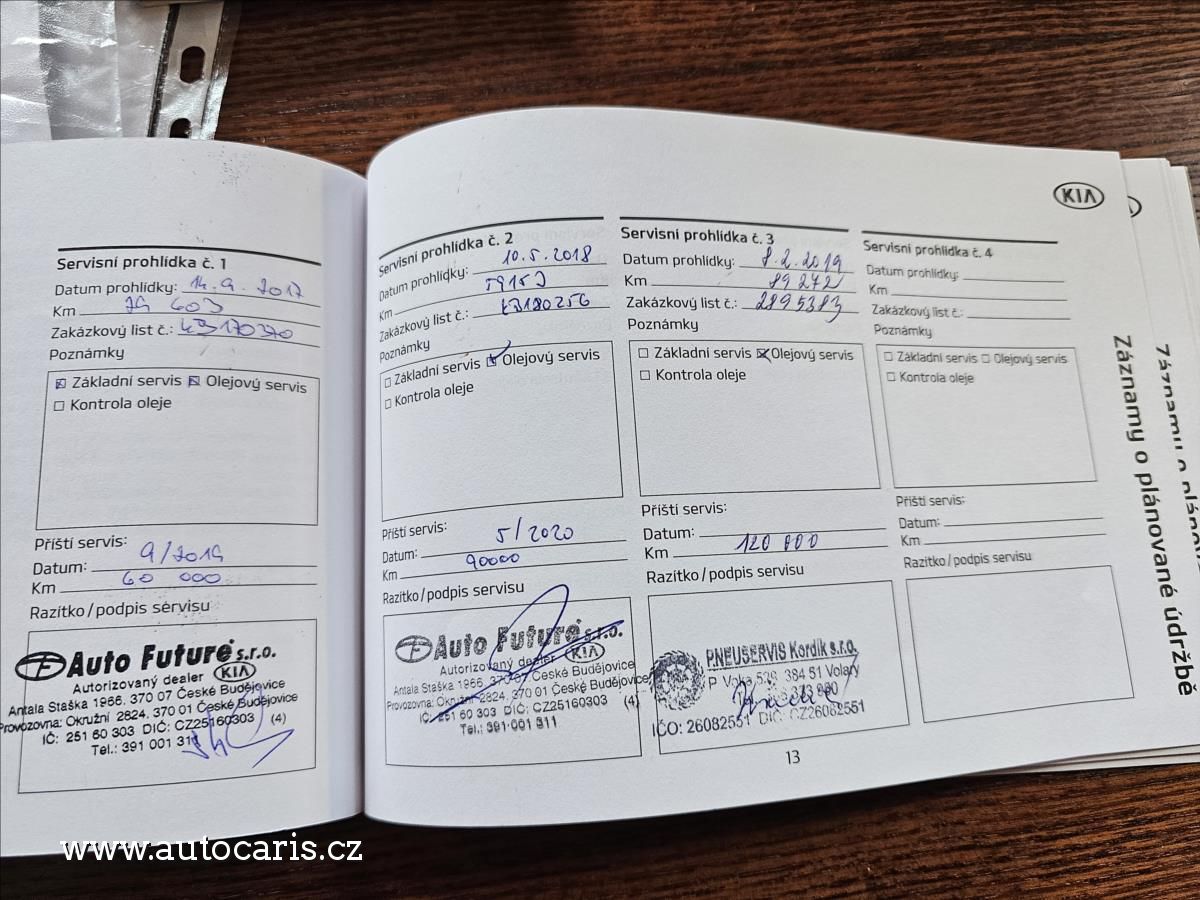 KIA
Servisní prohlídka č. 1
Datum prohlídky: 14.9. 2017
Km 29 603
Zakázkový list č.: 43170370
Poznámky
Základní servis Olejový servis
Kontrola oleje
Příští servis:
Datum: 9/2019
Km 60 000
Razítko/podpis servisu
Auto Future s.r.o.
Autorizovaný dealer KIA
Antala Staška 1966, 370 07 České Budějovice
Provozovna: Okružní 2824, 370 01 České Budějovice
IČ: 251 60 303 DIČ: CZ25160303 (4)
Tel.: 391 001 311
Servisní prohlídka č. 2
Datum prohlídky: 10.5.2018
Km 59153
Zakázkový list č.: 43180256
Poznámky
Základní servis Olejový servis
Kontrola oleje
Příští servis:
Datum: 5/2020
Km 90000
Razítko/podpis servisu
Auto Future s.r.o.
Autorizovaný dealer KIA
Antala Staška 1966, 370 07 České Budějovice
Provozovna: Okružní 2824, 370 01 České Budějovice
IČ: 251 60 303 DIČ: CZ25160303 (4)
Tel.: 391 001 311
Servisní prohlídka č. 3
Datum prohlídky: 8.2.2019
Km 89272
Zakázkový list č.: 2895383
Poznámky
Základní servis Olejový servis
Kontrola oleje
Příští servis:
Datum:
Km 120 000
Razítko/podpis servisu
PNEUSERVIS Kordík s.r.o.
384 51 Volary
IČO: 26082551 DIČ: CZ26082551
Servisní prohlídka č. 4
Datum prohlídky:
Km
Zakázkový list č.:
Poznámky
Základní servis Olejový servis
Kontrola oleje
Příští servis:
Datum:
Km
Razítko/podpis servisu
Záznamy o plánované údržbě
13
www.autocaris.cz